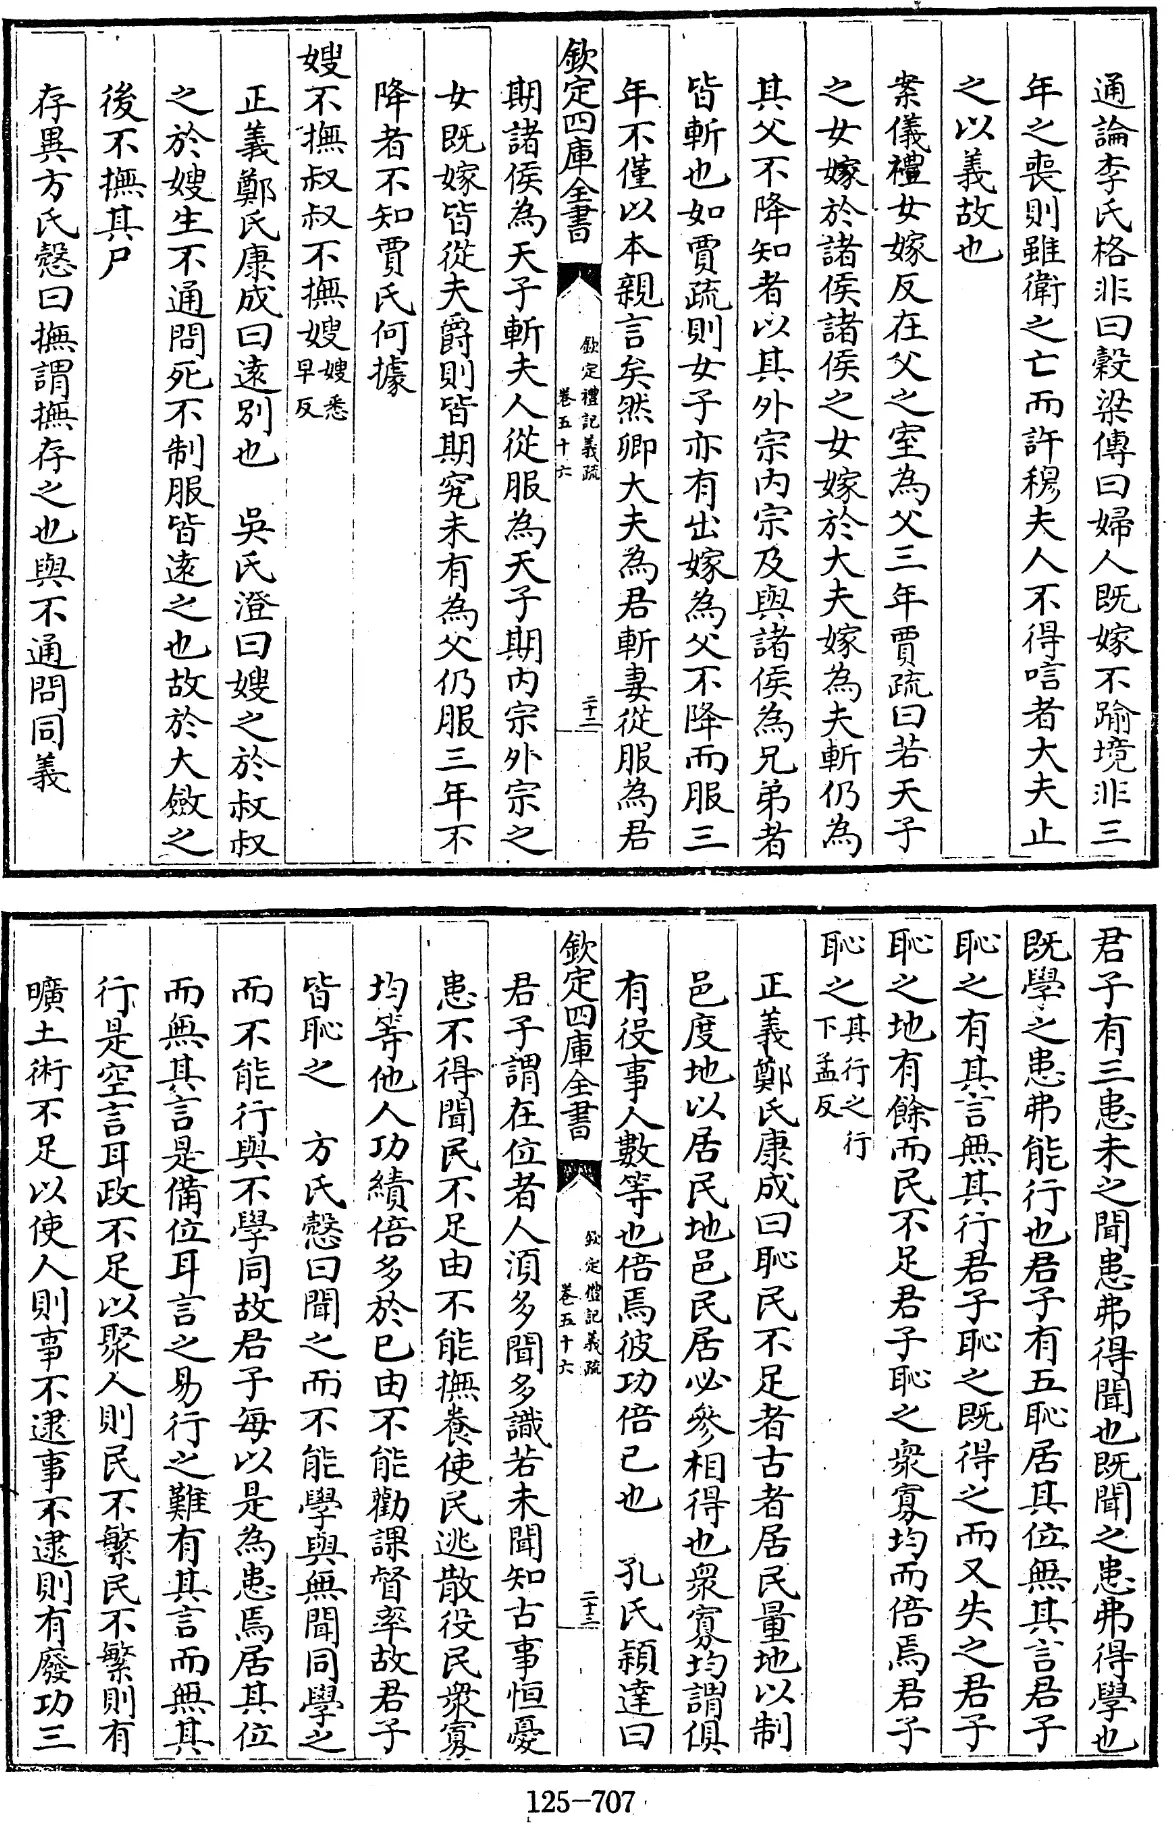 通論李氏格非曰穀梁傳曰婦人既嫁不踰境非三
年之喪則雖衛之亡而許穆夫人不得唁者大夫止
之以義故也
案儀禮女嫁反在父之室為父三年賈疏曰若天子
之女嫁於諸侯諸侯之女嫁於大夫嫁為夫斬仍為
其父不降知者以其外宗内宗及與諸侯為兄弟者
皆斬也如賈疏則女子亦有出嫁為父不降而服三
年不僅以本親言矣然卿大夫為君斬妻從服為君
欽定四庫全書
欽定禮記義疏
卷五十六
二十二
期諸侯為天子斬夫人從服為天子期内宗外宗之
女既嫁皆從夫爵則皆期究未有為父仍服三年不
降者不知賈氏何據
嫂不撫叔叔不撫嫂嫂悉
早反
正義鄭氏康成曰遠别也　吳氏澄曰嫂之於叔叔
之於嫂生不通問死不制服皆遠之也故於大斂之
後不撫其尸
存異方氏慤曰撫謂撫存之也與不通問同義
君子有三患未之聞患弗得聞也既聞之患弗得學也
既學之患弗能行也君子有五恥居其位無其言君子
恥之有其言無其行君子恥之既得之而又失之君子
恥之地有餘而民不足君子恥之衆寡均而倍焉君子
恥之其行之行
下孟反
正義鄭氏康成曰恥民不足者古者居民量地以制
邑度地以居民地邑民居必參相得也衆寡均謂俱
有役事人數等也倍焉彼功倍已也　孔氏穎達曰
欽定四庫全書
欽定禮記義疏
卷五十六
二十三
君子謂在位者人湏多聞多識若未聞知古事恒憂
患不得聞民不足由不能撫養使民逃散役民衆寡
均等他人功績倍多於已由不能勸課督率故君子
皆恥之　方氏慤曰聞之而不能學與無聞同學之
而不能行與不學同故君子每以是為患焉居其位
而無其言是備位耳言之易行之難有其言而無其
行是空言耳政不足以聚人則民不繁民不繁則有
曠土術不足以使人則事不逮事不逮則有廢功三
125-707